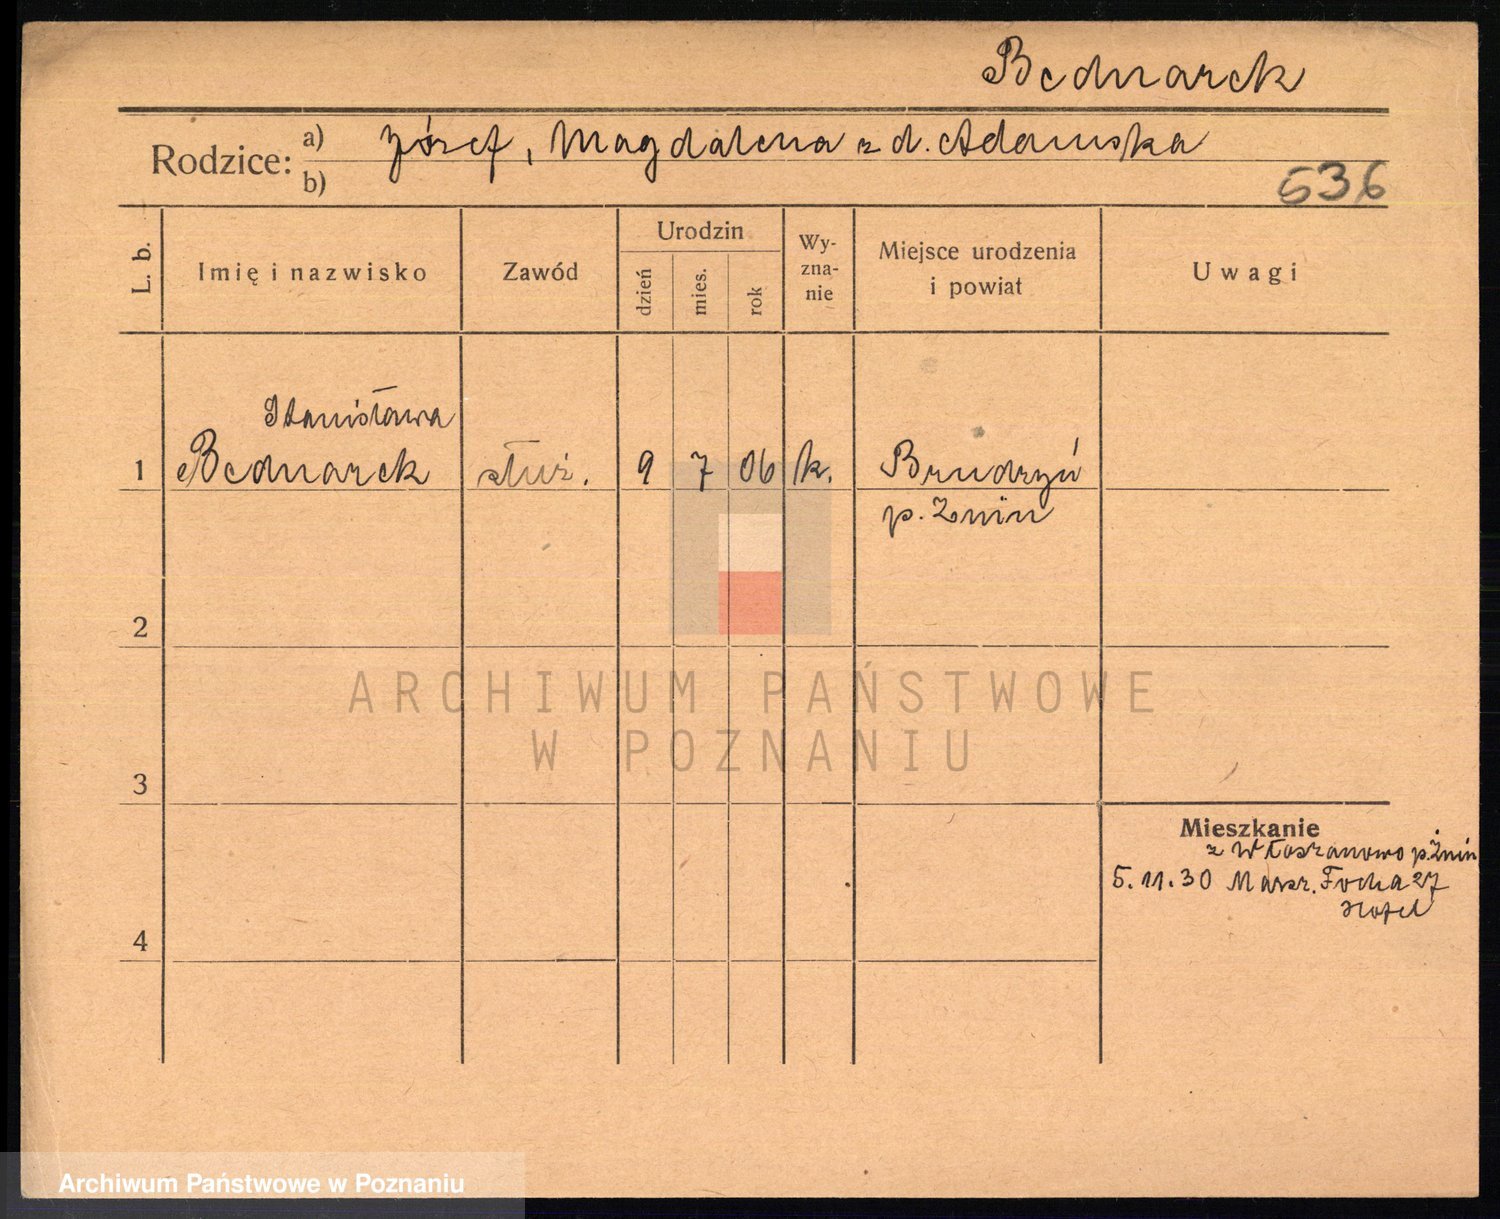 Bednarek
Rodzice: a) Józef, Magdalena z d. Adamska
b)
636
L. b.
Imię i nazwisko
Zawód
Urodzin
dzień
mies.
rok
Wy-
zna-
nie
Miejsce urodzenia
i powiat
Uwagi
Stanisława
1 Bednarek służ. 9 7 06 k. Brudzyń
p. Żnin
2
ARCHIWUM PAŃSTWOWE
W POZNANIU
3
Mieszkanie
z Włoszanowo p. Żnin
5.11.30 Marsz. Focha 27
Hotel
4
Archiwum Państwowe w Poznaniu